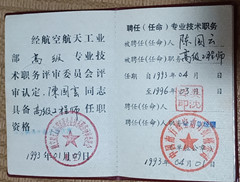 经航空航天工业
部 高级 专业技
术职务评审委员会评
审认定,陈国云 同志
具备高级工程师任职
资格
1993年01月09日
聘任(任命)专业技术职务
被聘任(任命)人 陈国云
被聘任(任命) 高级工程师
任期 自1993年04月 日
至1996年03月 日
聘任(任命)
1993年04月 日